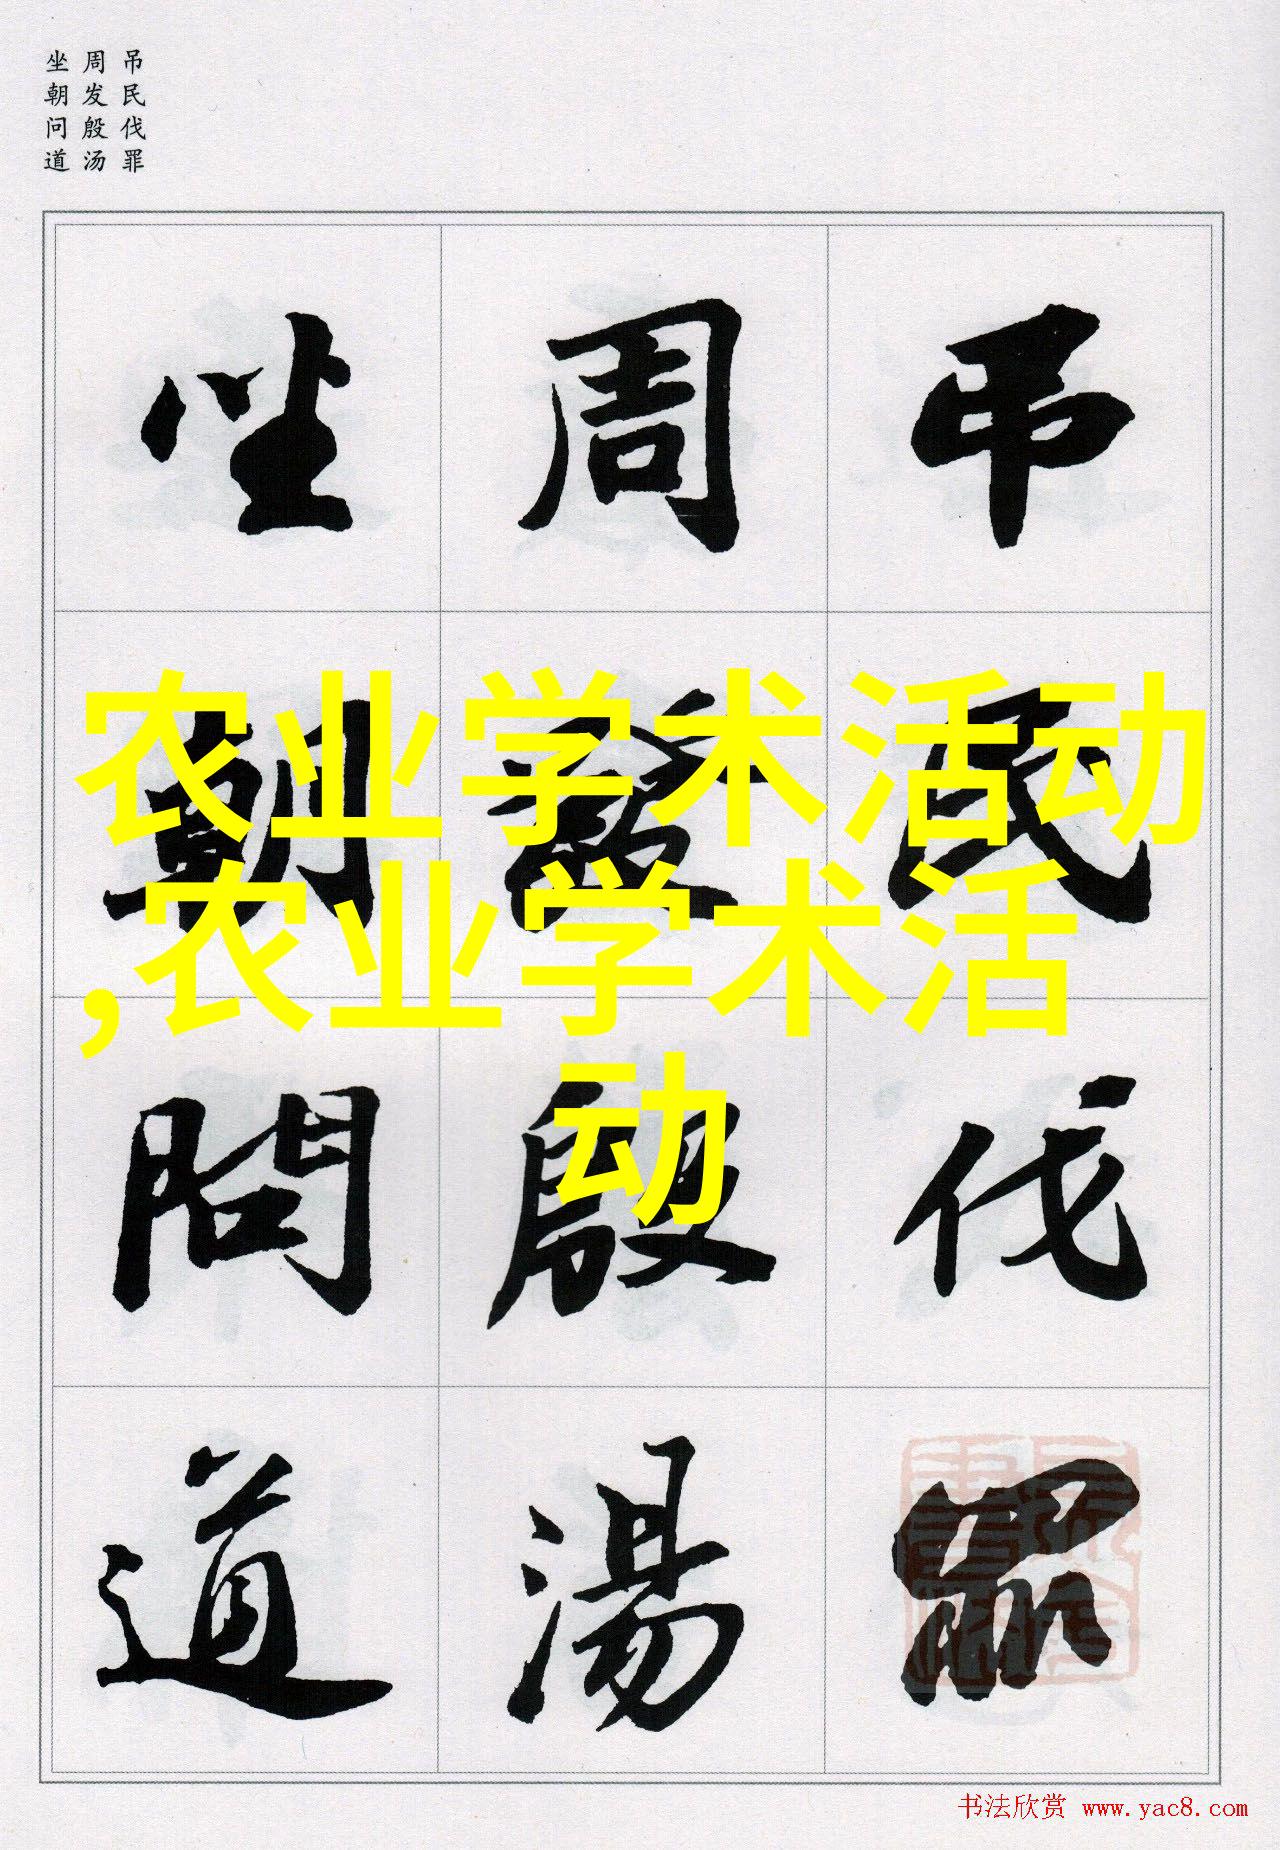 吊民伐罪
周发殷汤
坐朝问道
吊民伐罪
周發殷湯
坐朝問道
农业学术活动
,农业学术活
动
书法欣赏 www.yac8.com